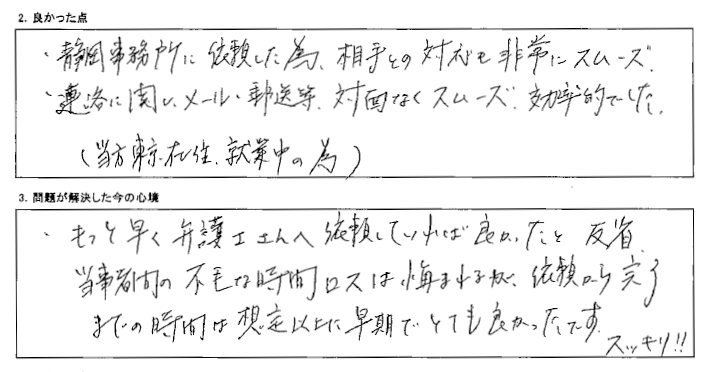 2. 良かった点
・静岡事務所に依頼した為、相手との対応も非常にスムーズ.
・連絡に関し、メール・郵送等、対面なくスムーズ、効率的でした.
(当方東京在住、就業中の為)
3. 問題が解決した今の心境
・もっと早く弁護士さんへ依頼していれば良かったと反省.
当事者間の不毛な時間ロスは悔まれるが、依頼から完了
までの時間は想定以上に早期でとても良かったです.
スッキリ!!